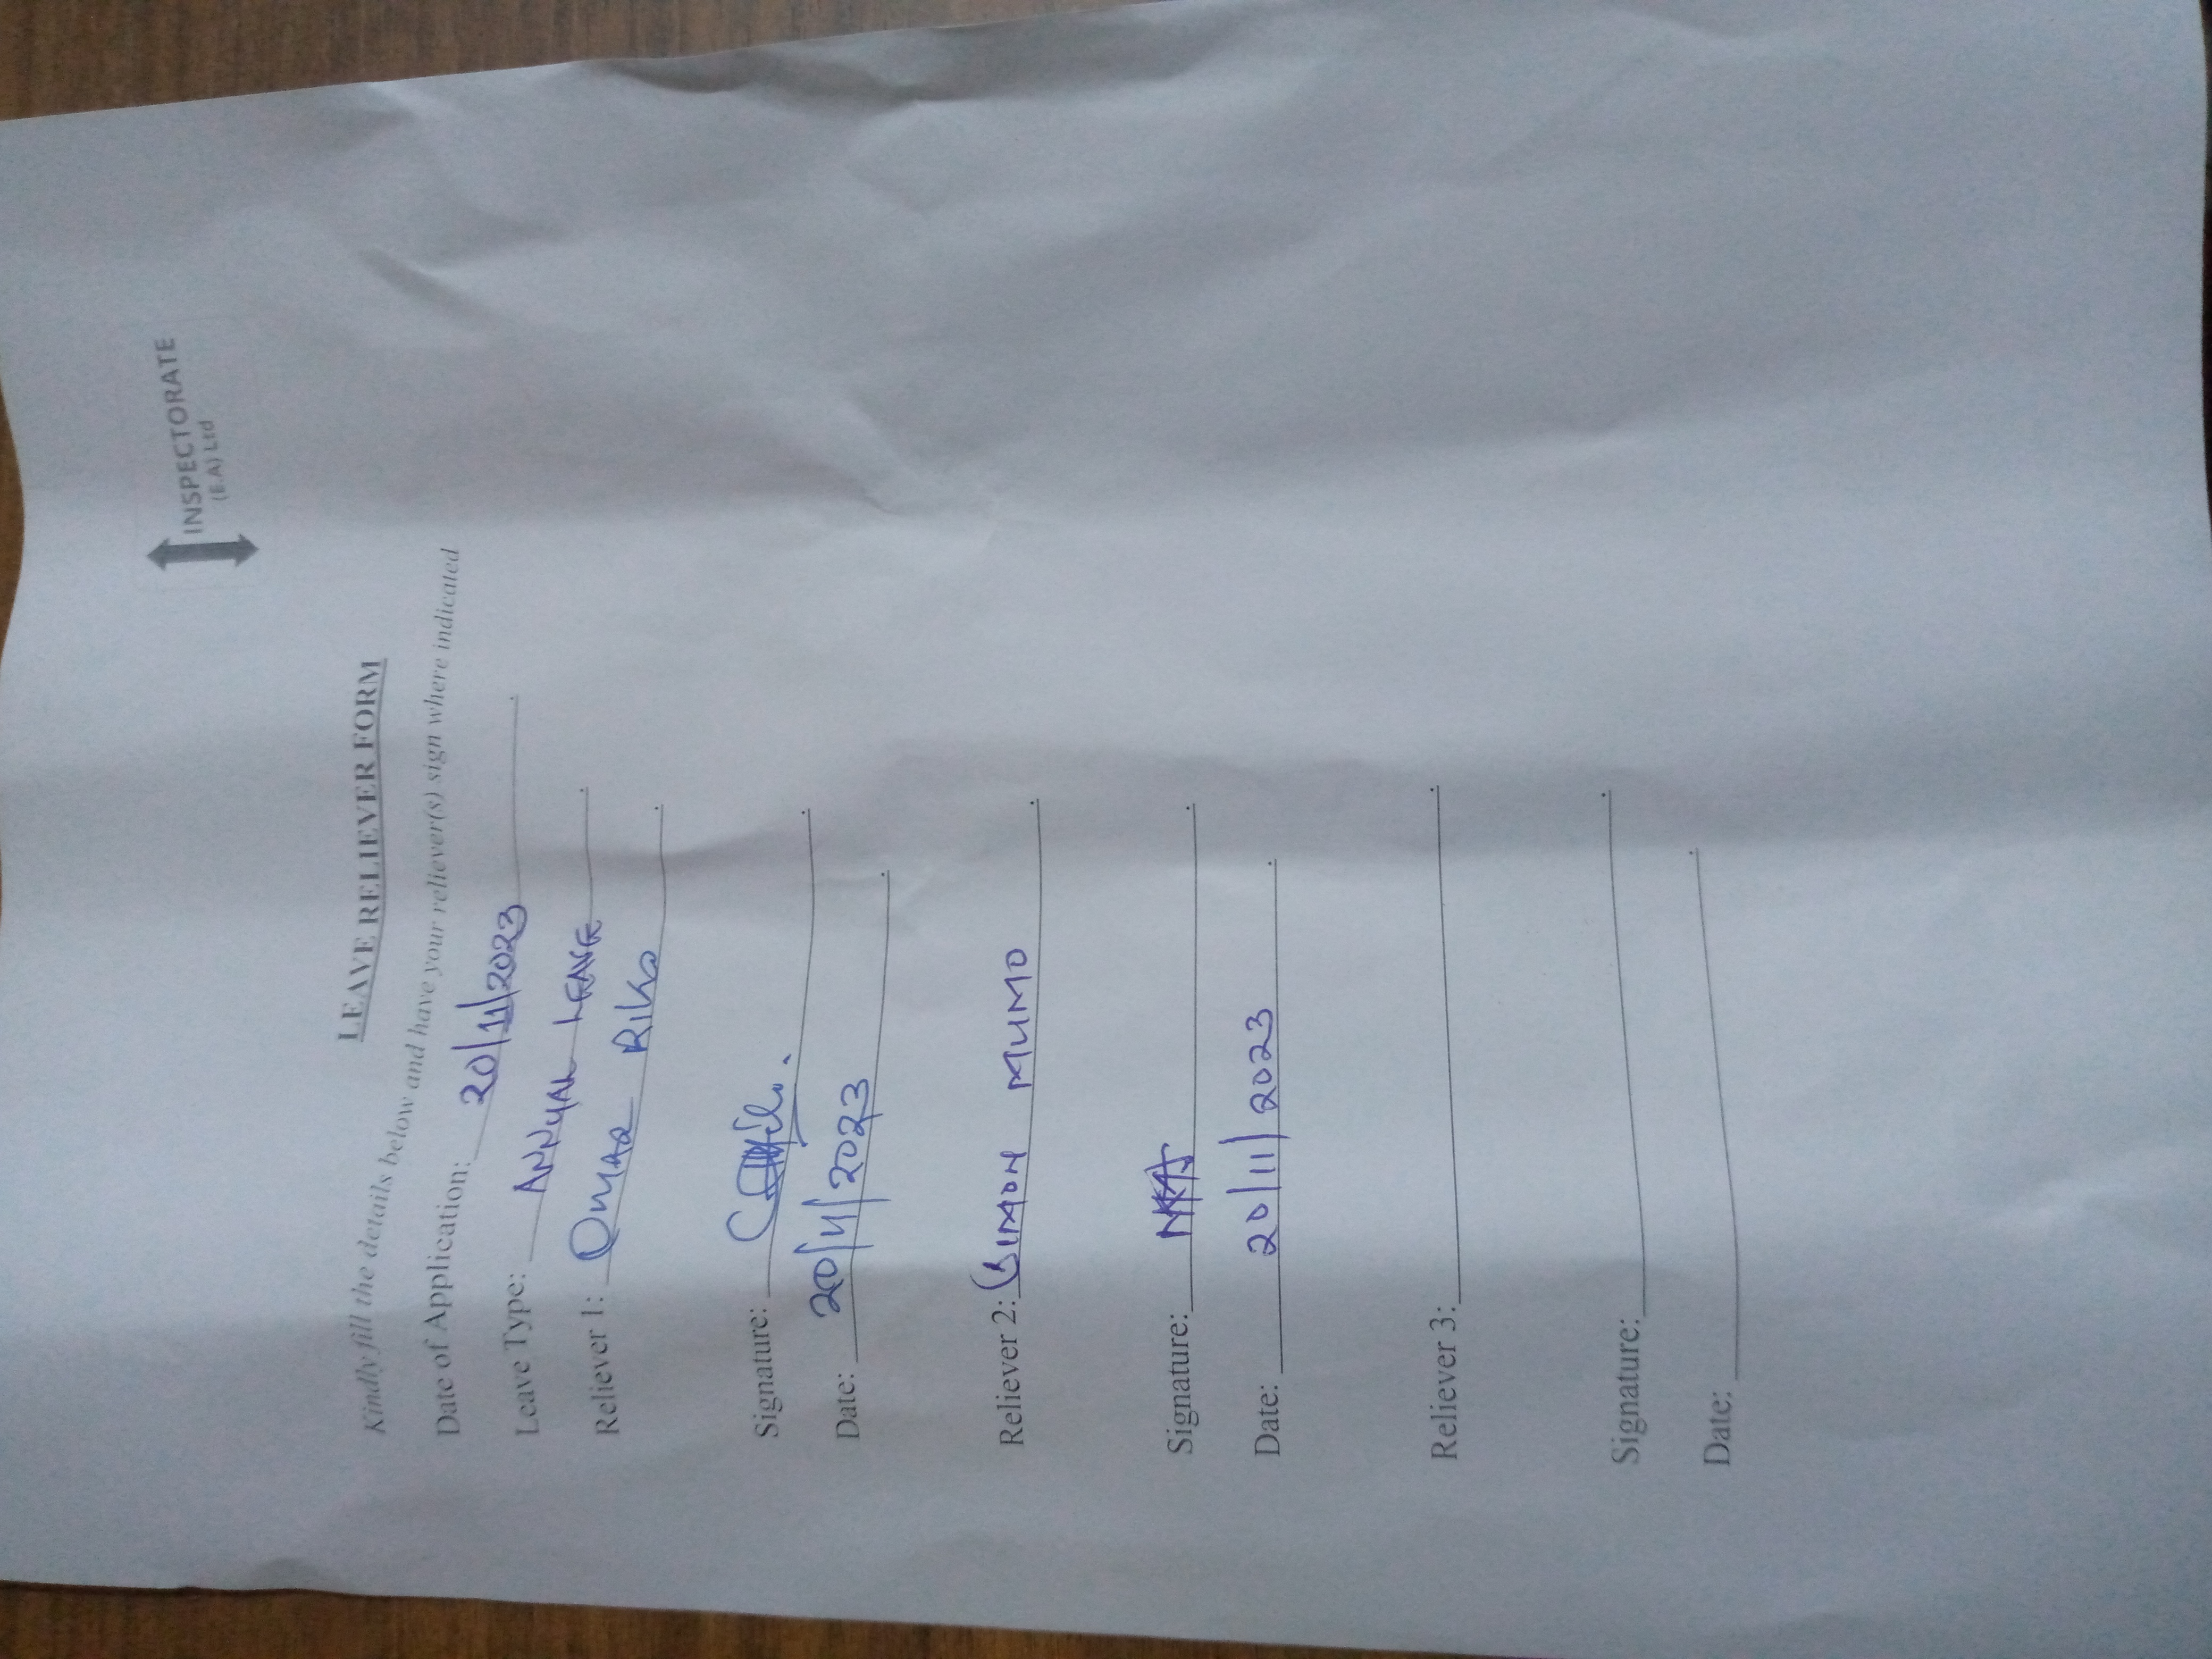 INSPECTORATE
(E.A) Ltd
LEAVE RELIEVER FORM
Kindly fill the details below and have your reliever(s) sign where indicated
Date of Application: 20/11/2023
Leave Type: ANNUAL LEAVE
Reliever 1: OMAR RIKO
Signature:
Date: 20/11/2023
Reliever 2: SIMON MUMO
Signature:
Date: 20/11/2023
Reliever 3:
Signature:
Date: